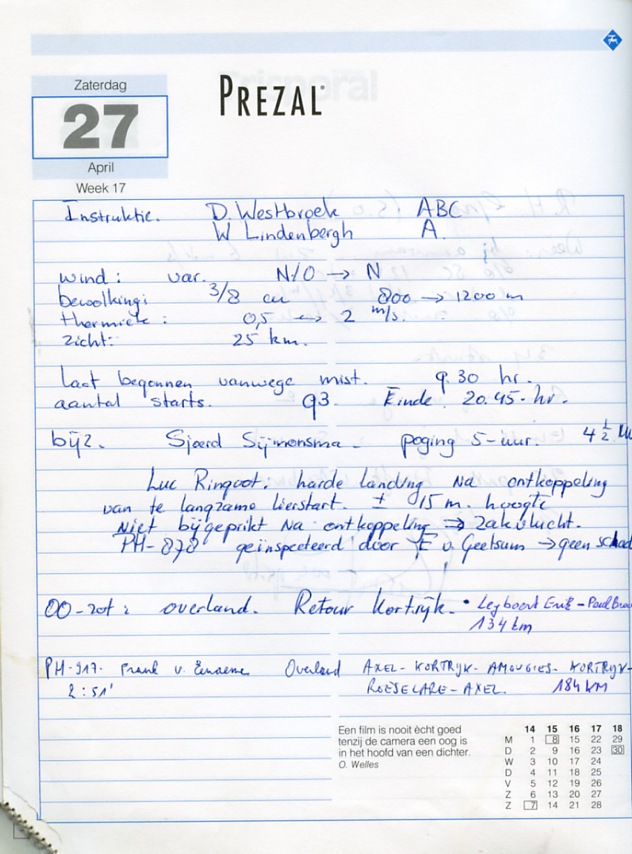 Zaterdag
27
April
Week 17
PREZAL
Instruktie. D. Westbroek ABC
W Lindenbergh A.
wind: var. N/O → N
bewolking: 3/8 cu 800 → 1200 m
thermiek: 0,5 ↔ 2 m/s.
zicht: 25 km.
Laat begonnen vanwege mist. 9.30 hr.
aantal starts. 93. Einde. 20.45- hr.
bijz. Sjoerd Sijmonsma - poging 5-uur. 4 1/2
Luc Ringoot: harde landing na ontkoppeling
van te langzame lierstart. ± 15 m. hoogte
Niet bijgeprikt na ontkoppeling ⇒ zakvlucht.
PH-878 geïnspecteerd door E v. Geetsum → geen
OO-zot: overland. Retour Kortrijk. • Leybaert Eric - Paul
134 km
PH-917. Frank v. Overland AXEL - KORTRIJK - AMOUGIES - KORTRIJK-
2:51' ROESELARE - AXEL. 184 KM
Een film is nooit ècht goed
tenzij de camera een oog is
in het hoofd van een dichter.
O. Welles
14 15 16 17 18
M 1 8 15 22 29
D 2 9 16 23 30
W 3 10 17 24
D 4 11 18 25
V 5 12 19 26
Z 6 13 20 27
Z 7 14 21 28